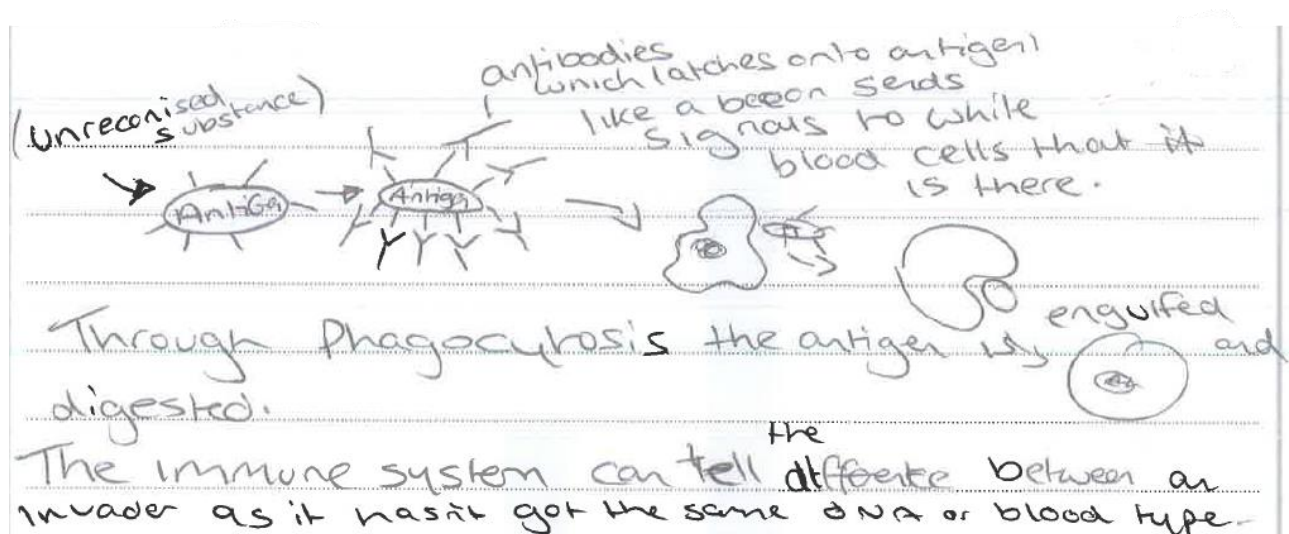 (unreconised substance)
antibodies
which latches onto antigen
like a beeon sends
signals to white
blood cells that it
is there.
AntiGen
Antigen
Through Phagocytosis the antigen is engulfed and
digested.
The immune system can tell the difference between an
invader as it hasn't got the same DNA or blood type.